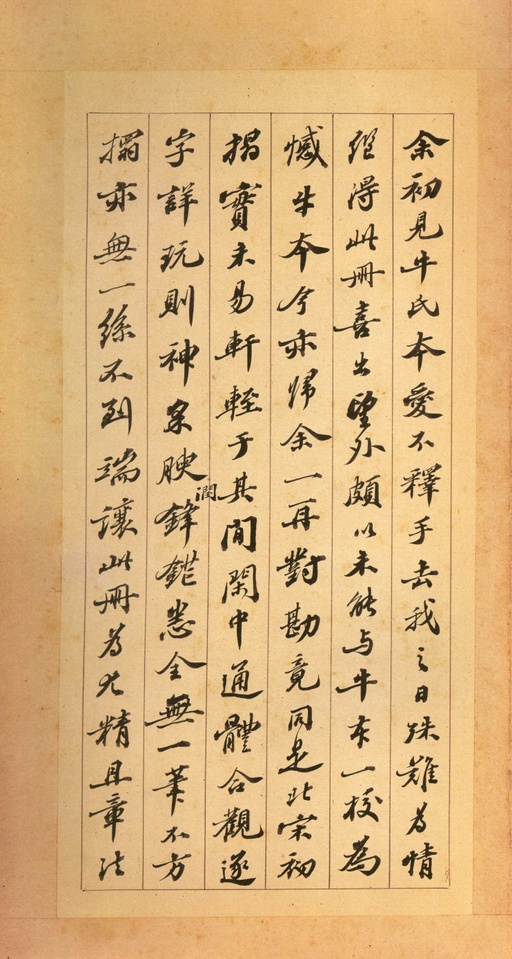 余初見牛氏本愛不釋手去我之日殊難為情
繼得此冊喜出望外頗以未能与牛本一校為
憾牛本今亦歸余一再對勘竟同是北宋初
搨實未易軒輊于其間閑中通體合觀逐
字詳玩則神采腴潤鋒鎩悉全無一筆不方
搨亦無一絲不到端讓此冊為尤精且章法